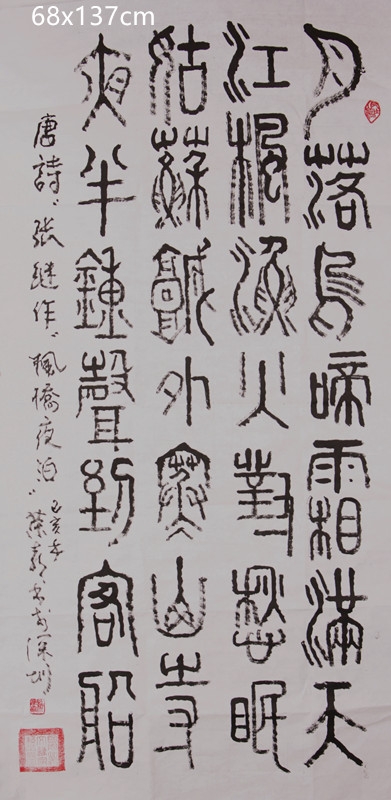 68x137cm
月落烏啼霜滿天
江楓漁火對愁眠
姑蘇城外寒山寺
夜半鍾聲到客船
唐詩、張繼作、楓橋夜泊 己亥年 書於深圳